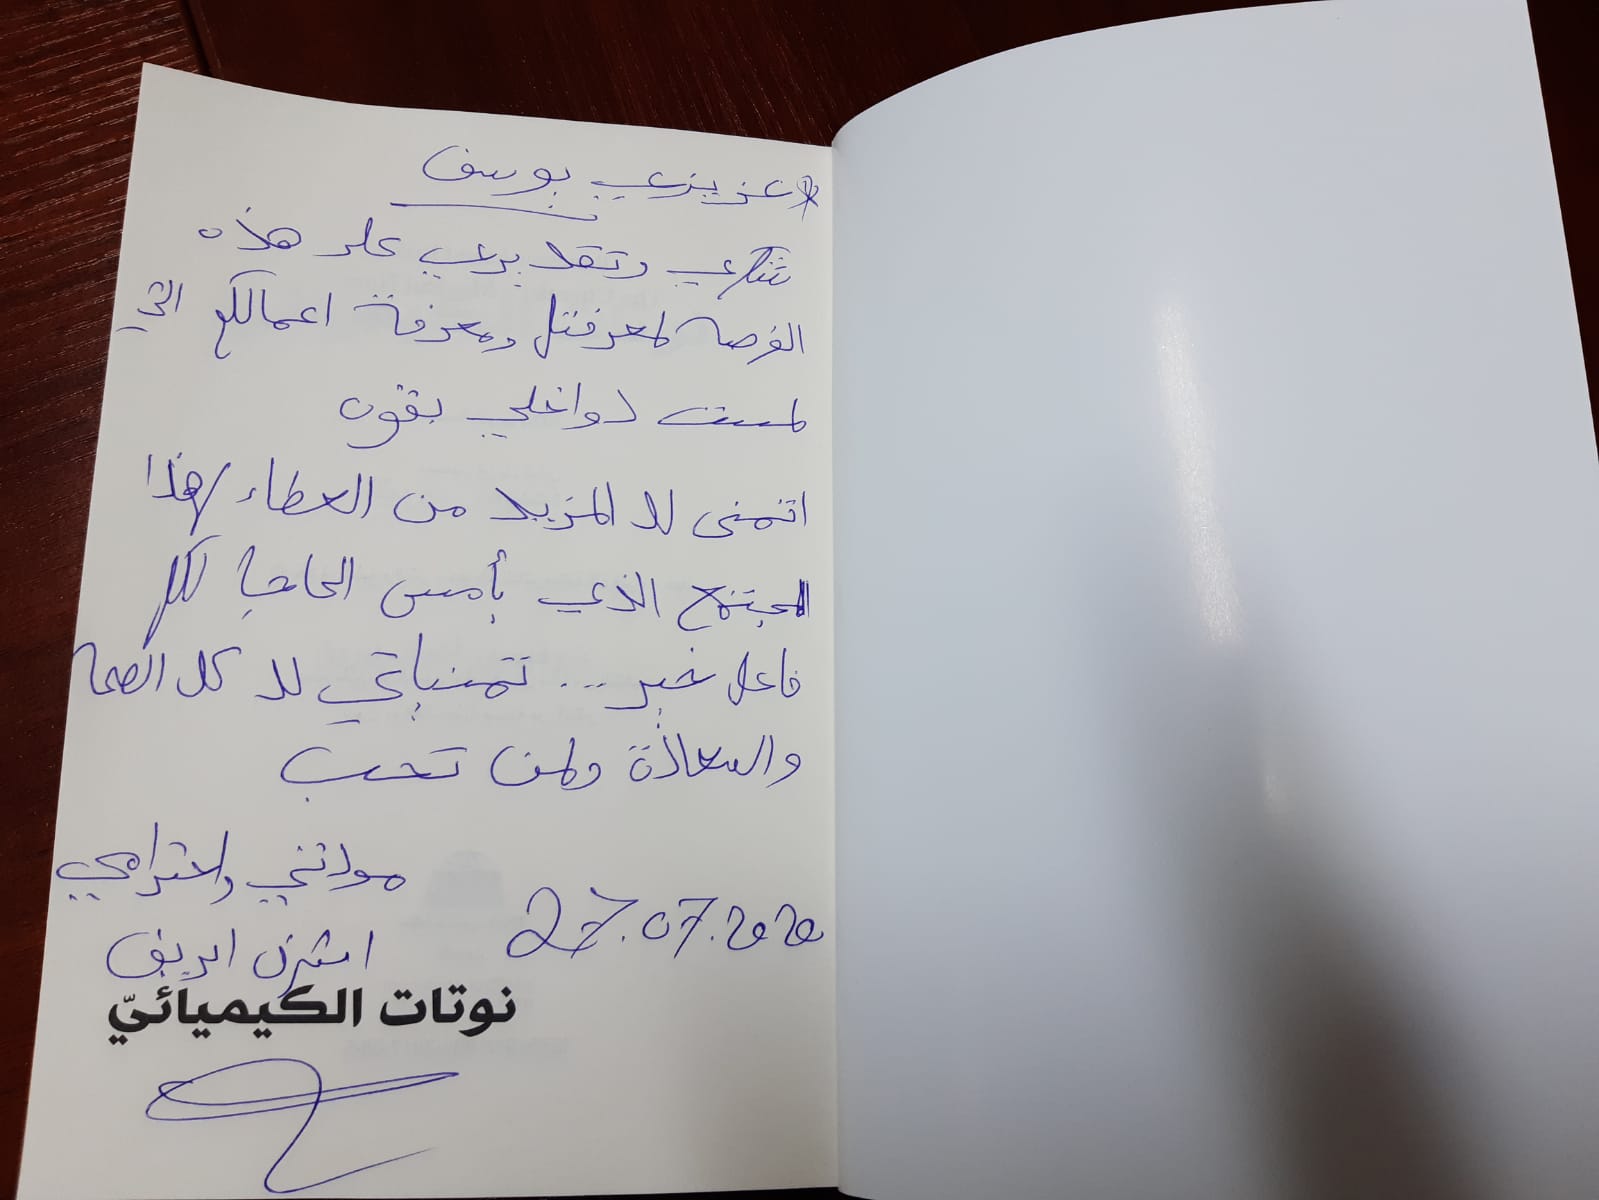 عزيزي يوسف
شكري وتقديري على هذه
الفرصة لمعرفتك ومعرفة اعمالكم التي
لمست دواخلي بقوة
اتمنى لك المزيد من العطاء لهذا
المجتمع الذي بأمس الحاجة لكل
فاعل خير ... تمنياتي لك كل الصحة
والسعادة ولمن تحب
مودتي واحترامي
27.07.2020
نوتات الكيميائيّ